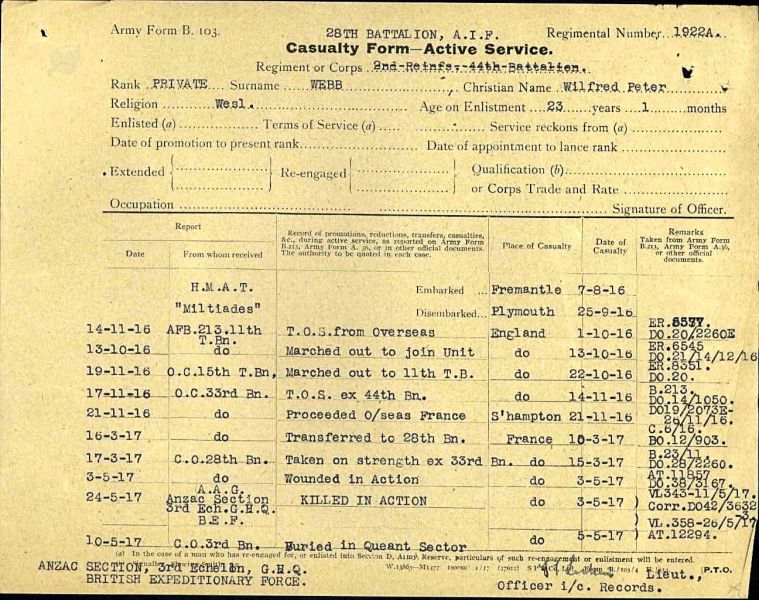 Army Form B. 103.
28TH BATTALION, A.I.F.
Regimental Number 1922A.
Casualty Form—Active Service.
Regiment or Corps 2nd-Reinfs.-44th-Battalion.
Rank PRIVATE Surname WEBB Christian Name Wilfred Peter
Religion Wesl. Age on Enlistment 23 years 1 months
Enlisted (a) Terms of Service (a) Service reckons from (a)
Date of promotion to present rank Date of appointment to lance rank
Extended Re-engaged Qualification (b)
or Corps Trade and Rate
Occupation Signature of Officer.
Report
Date From whom received
Record of promotions, reductions, transfers, casualties, &c., during active service, as reported on Army Form B.213, Army Form A. 36, or in other official documents. The authority to be quoted in each case.
Place of Casualty
Date of Casualty
Remarks
Taken from Army Form B.213, Army Form A.36, or other official documents.
H.M.A.T. Embarked ... Fremantle 7-8-16
"Miltiades" Disembarked... Plymouth 25-9-16
14-11-16 AFB.213.11th T.Bn. T.O.S.from Overseas England 1-10-16 ER.8537. DO.20/2260E
13-10-16 do Marched out to join Unit do 13-10-16 ER.6545 DO.21/14/12/16
19-11-16 O.C.15th T.Bn, Marched out to 11th T.B. do 22-10-16 ER.8351. DO.20.
17-11-16 O.C.33rd Bn. T.O.S. ex 44th Bn. do 14-11-16 B.213. DO.14/1050.
21-11-16 do Proceeded O/seas France S'hampton 21-11-16 DO19/2073E- 26/11/16.
16-3-17 do Transferred to 28th Bn. France 10-3-17 C.6/16. BO.12/903.
17-3-17 C.O.28th Bn. Taken on strength ex 33rd Bn. do 15-3-17 B.23/11. DO.28/2260.
3-5-17 do Wounded in Action do 3-5-17 AT.11857 DO.38/3167.
24-5-17 A.A.G. Anzac Section 3rd Ech.G.H.Q. B.E.F. KILLED IN ACTION do 3-5-17 ) VL343-11/5/17. Corr.DO42/3632
) VL.358-26/5/17
10-5-17 C.O.3rd Bn. Buried in Queant Sector do 5-5-17 ) AT.12294.
(a) In the case of a man who has re-engaged for, or enlisted into Section D, Army Reserve, particulars of such re-engagement or enlistment will be entered.
ANZAC SECTION, 3rd Echelon, G.H.Q.
BRITISH EXPEDITIONARY FORCE.
Lieut.,
[P.T.O.
Officer i/c. Records.